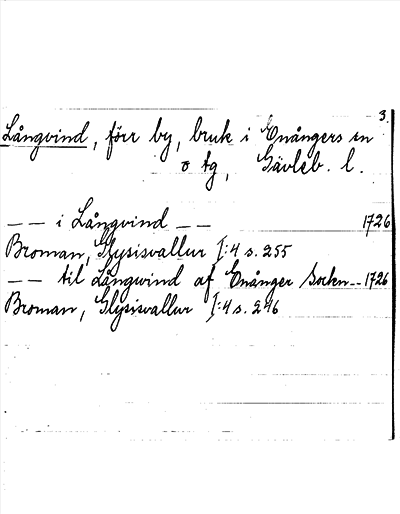 3.
Långvind, förr by, bruk i Enångers sn
o tg, Gävleb. l.
— — i Långvind — — 1726
Broman, Glysisvallur I:4 s. 255
— — til Långwind af Enånger Sockn -- 1726
Broman, Glysisvallur I:4 s. 246